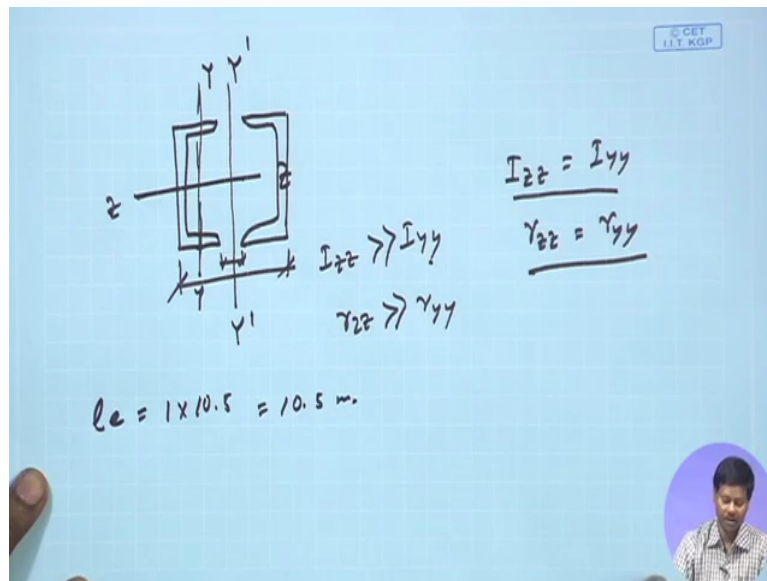 © CET
I.I.T. KGP
Y Y'
z z
Y Y'
I_zz >> I_yy
r_zz >> r_yy
I_zz = I_yy
r_zz = r_yy
le = 1 x 10.5 = 10.5 m.